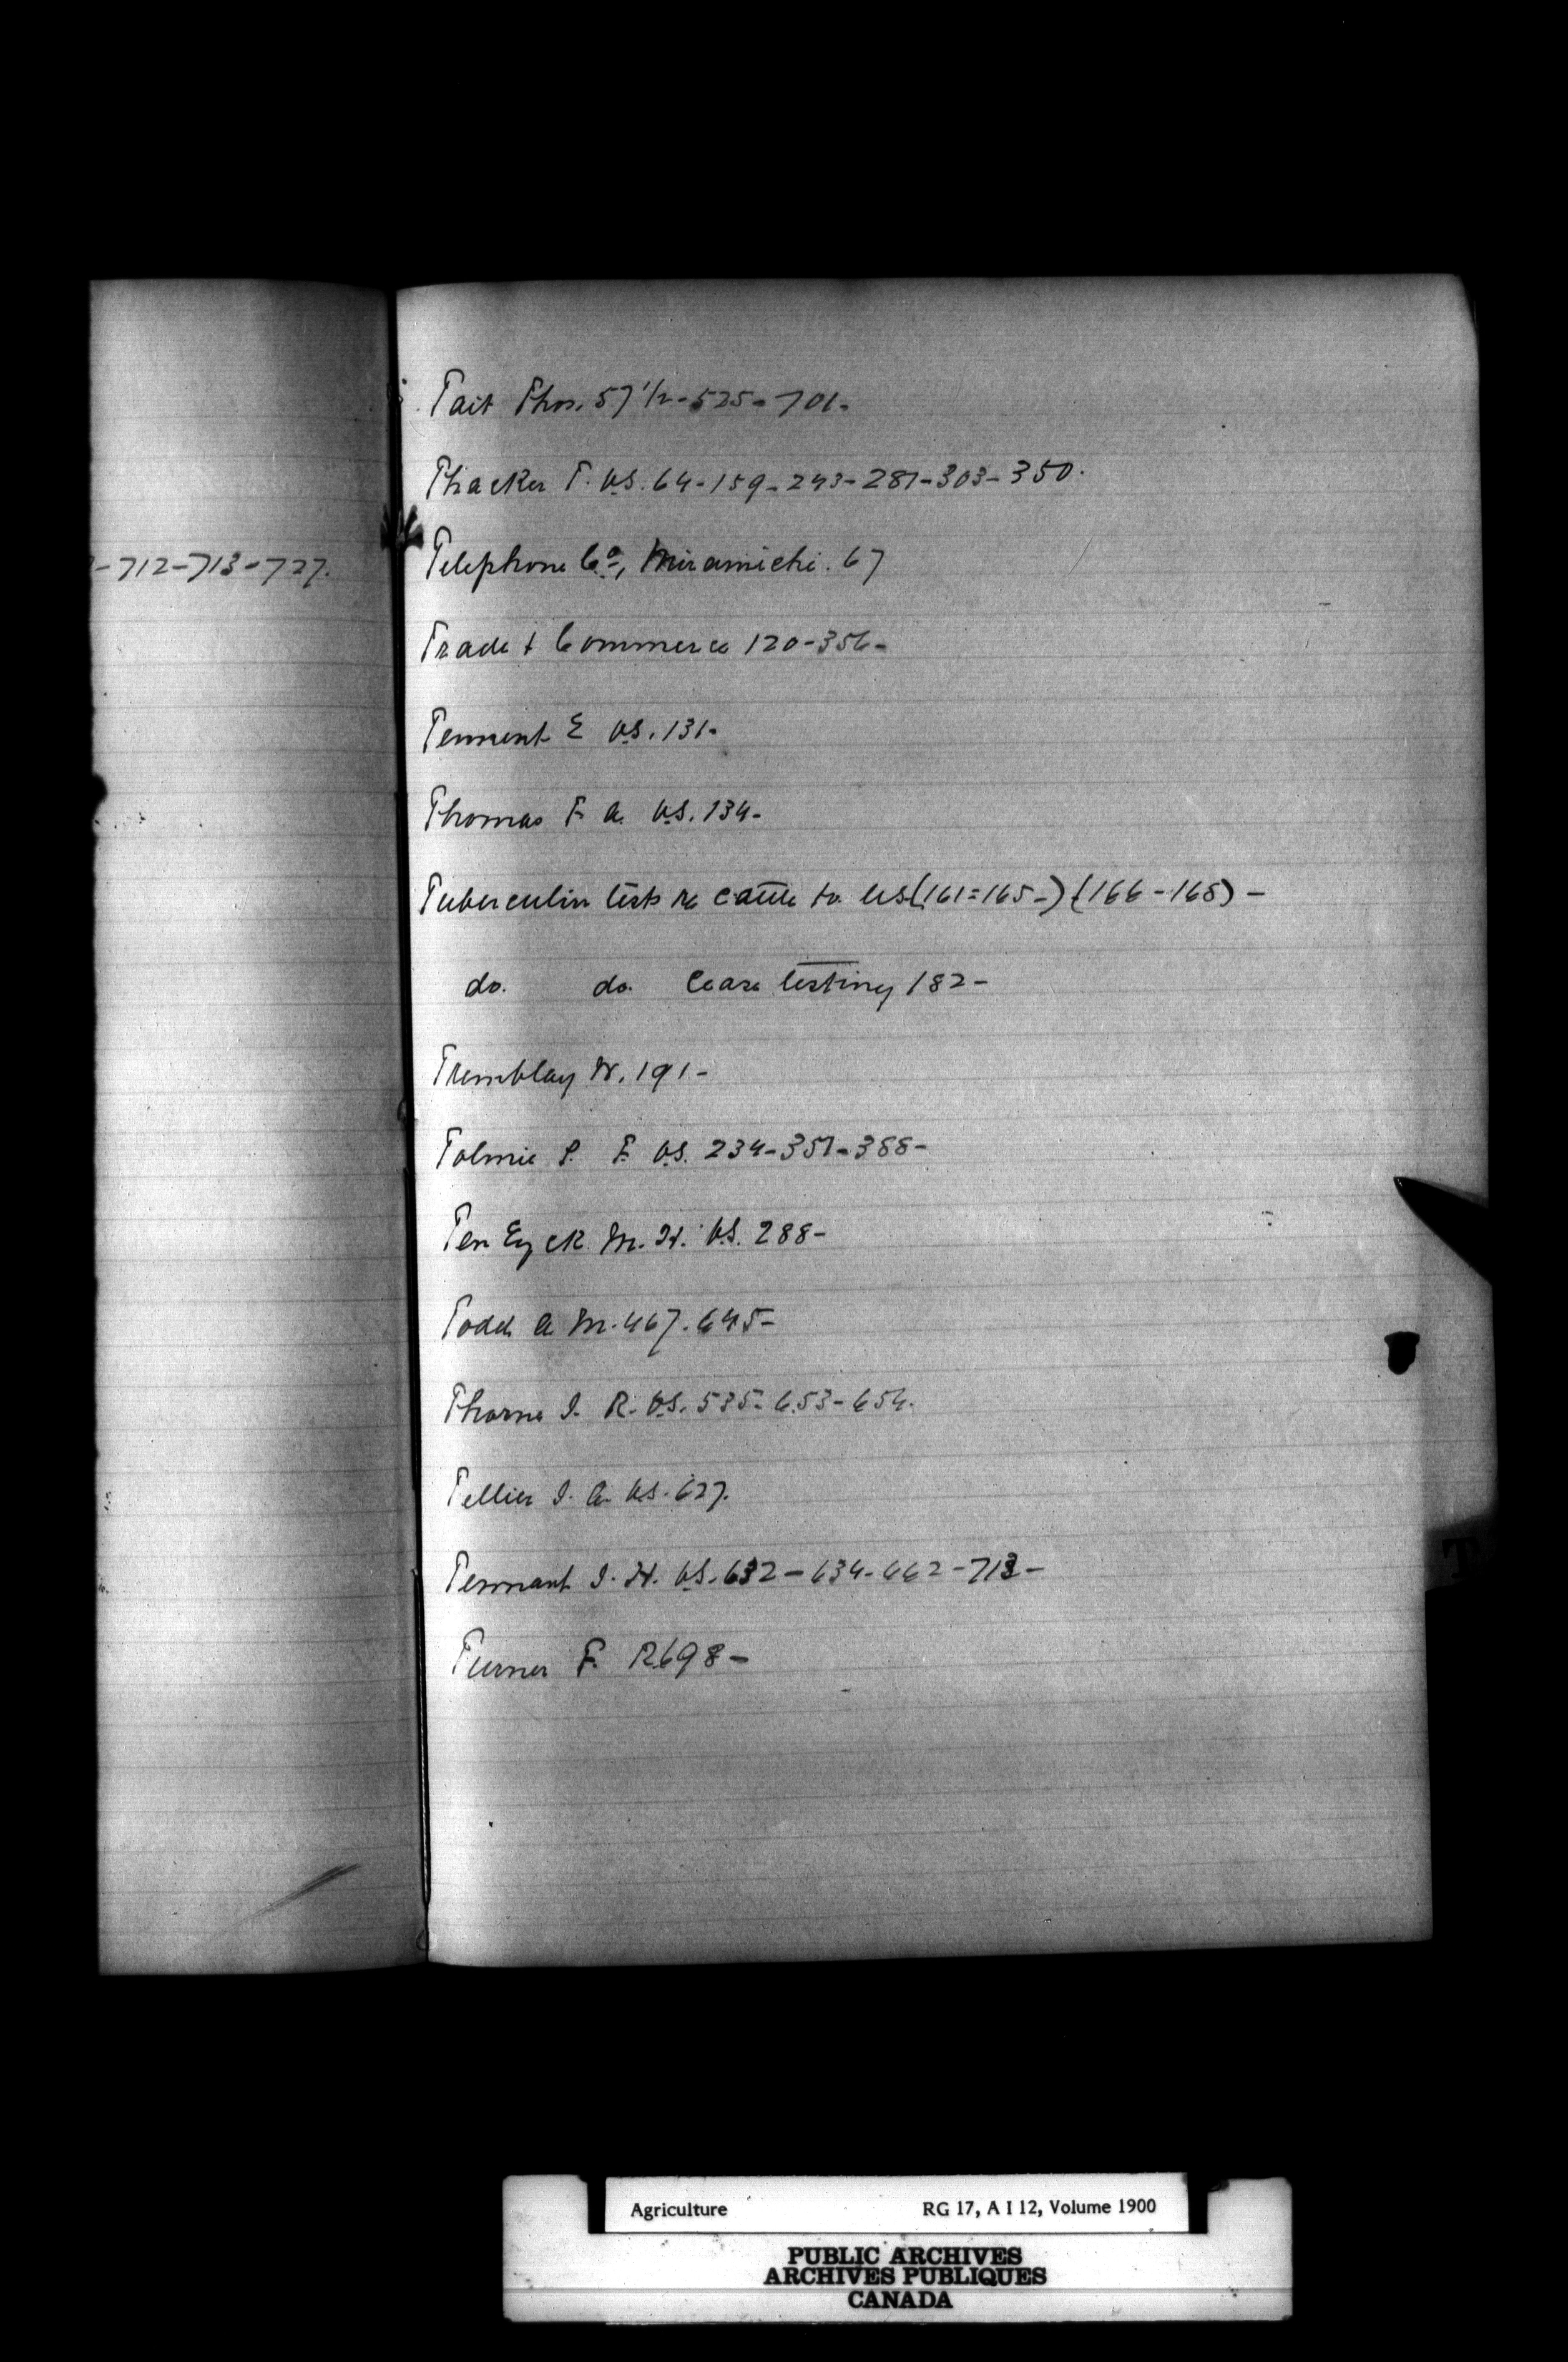 -712-713-727.
Tait Thos. 57 1/2-525-701-
Thacker T. V.S. 64-159-243-287-303-350.
Telephone Co, Miramichi. 67
Trade & Commerce 120-356-
Tennent E V.S. 131-
Thomas F. A. V.S. 134-
Tuberculin tests re cattle to U.S. (161=165-) (166-168)-
do. do. Cease testing 182-
Tremblay W. 191-
Tolmie S. F. V.S. 234-357-388-
Ten Eyck M. H. V.S. 288-
Todd A M. 467. 645-
Thorne J. R. V.S. 535-653-654.
Tellier J. A. V.S. 627.
Tennant J. H. V.S. 632-634-662-713-
Turner F. R 698-
T
Agriculture RG 17, A I 12, Volume 1900
PUBLIC ARCHIVES
ARCHIVES PUBLIQUES
CANADA